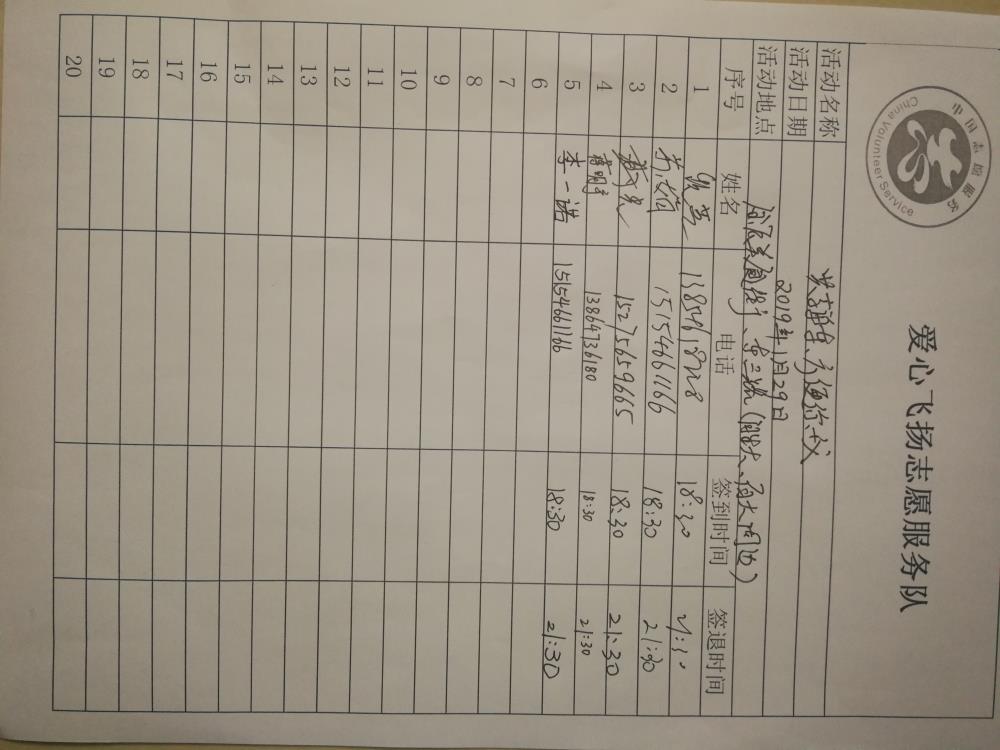 中国志愿服务
China Volunteer Service
爱心飞扬志愿服务队
活动名称
活动日期 2019年1月29日
活动地点
序号 姓名 电话 签到时间 签退时间
1 18:30 21:30
2 15154661166 18:30 21:30
3 15275659665 18:30 21:30
4 13864736180 18:30 21:30
5 李一诺 15154661166 18:30 21:30
6
7
8
9
10
11
12
13
14
15
16
17
18
19
20